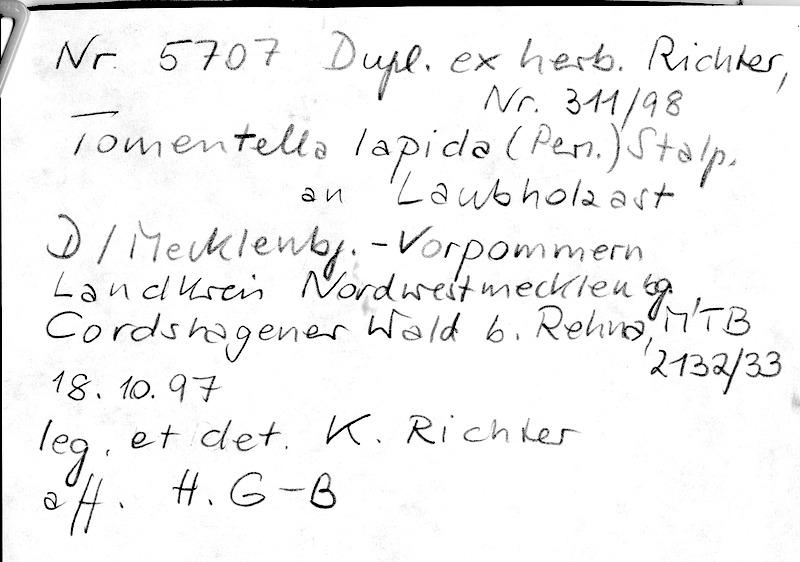 Nr. 5707 Dupl. ex herb. Richter,
Nr. 311/98
Tomentella lapida (Pers.) Stalp.
an Laubholzast
D / Mecklenbg.-Vorpommern
Landkreis Nordwestmecklenbg.,
Cordshagener Wald b. Rehna, MTB
2132/33
18.10.97
leg. et det. K. Richter
aff. H. G-B